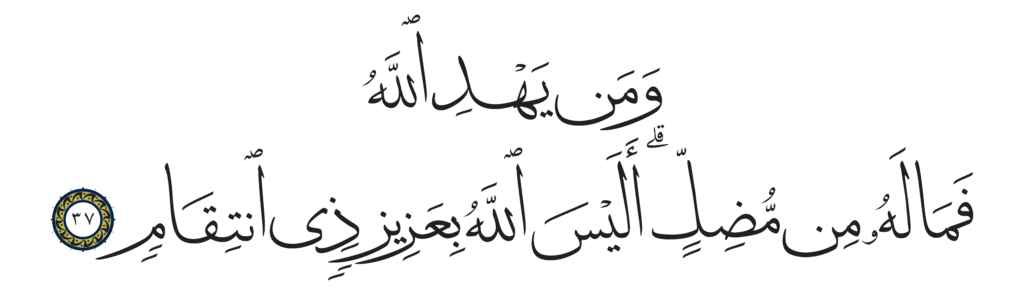 وَمَن يَهْدِ ٱللَّهُ
فَمَا لَهُۥ مِن مُّضِلٍّ ۗ أَلَيْسَ ٱللَّهُ بِعَزِيزٍ ذِى ٱنتِقَامٍ ٣٧